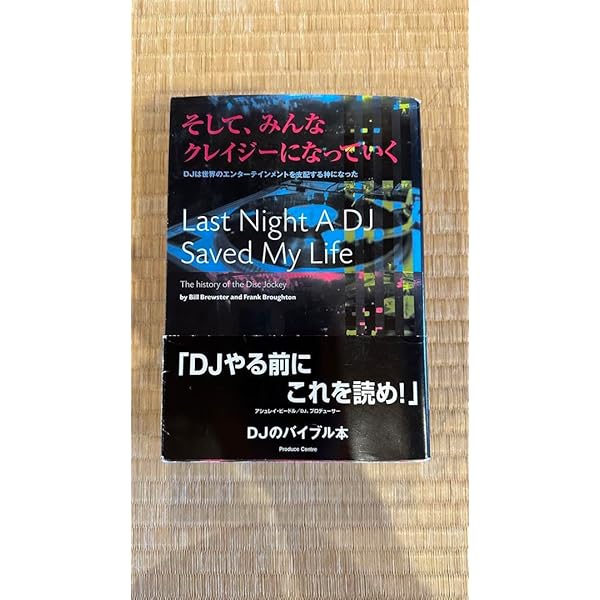 そして、みんな
クレイジーになっていく
DJは世界のエンターテインメントを支配する神になった
Last Night A DJ
Saved My Life
The history of the Disc Jockey
by Bill Brewster and Frank Broughton
「DJやる前に
これを読め!」
アシュレイ・ビードル/DJ、プロデューサー
DJのバイブル本
Produce Centre